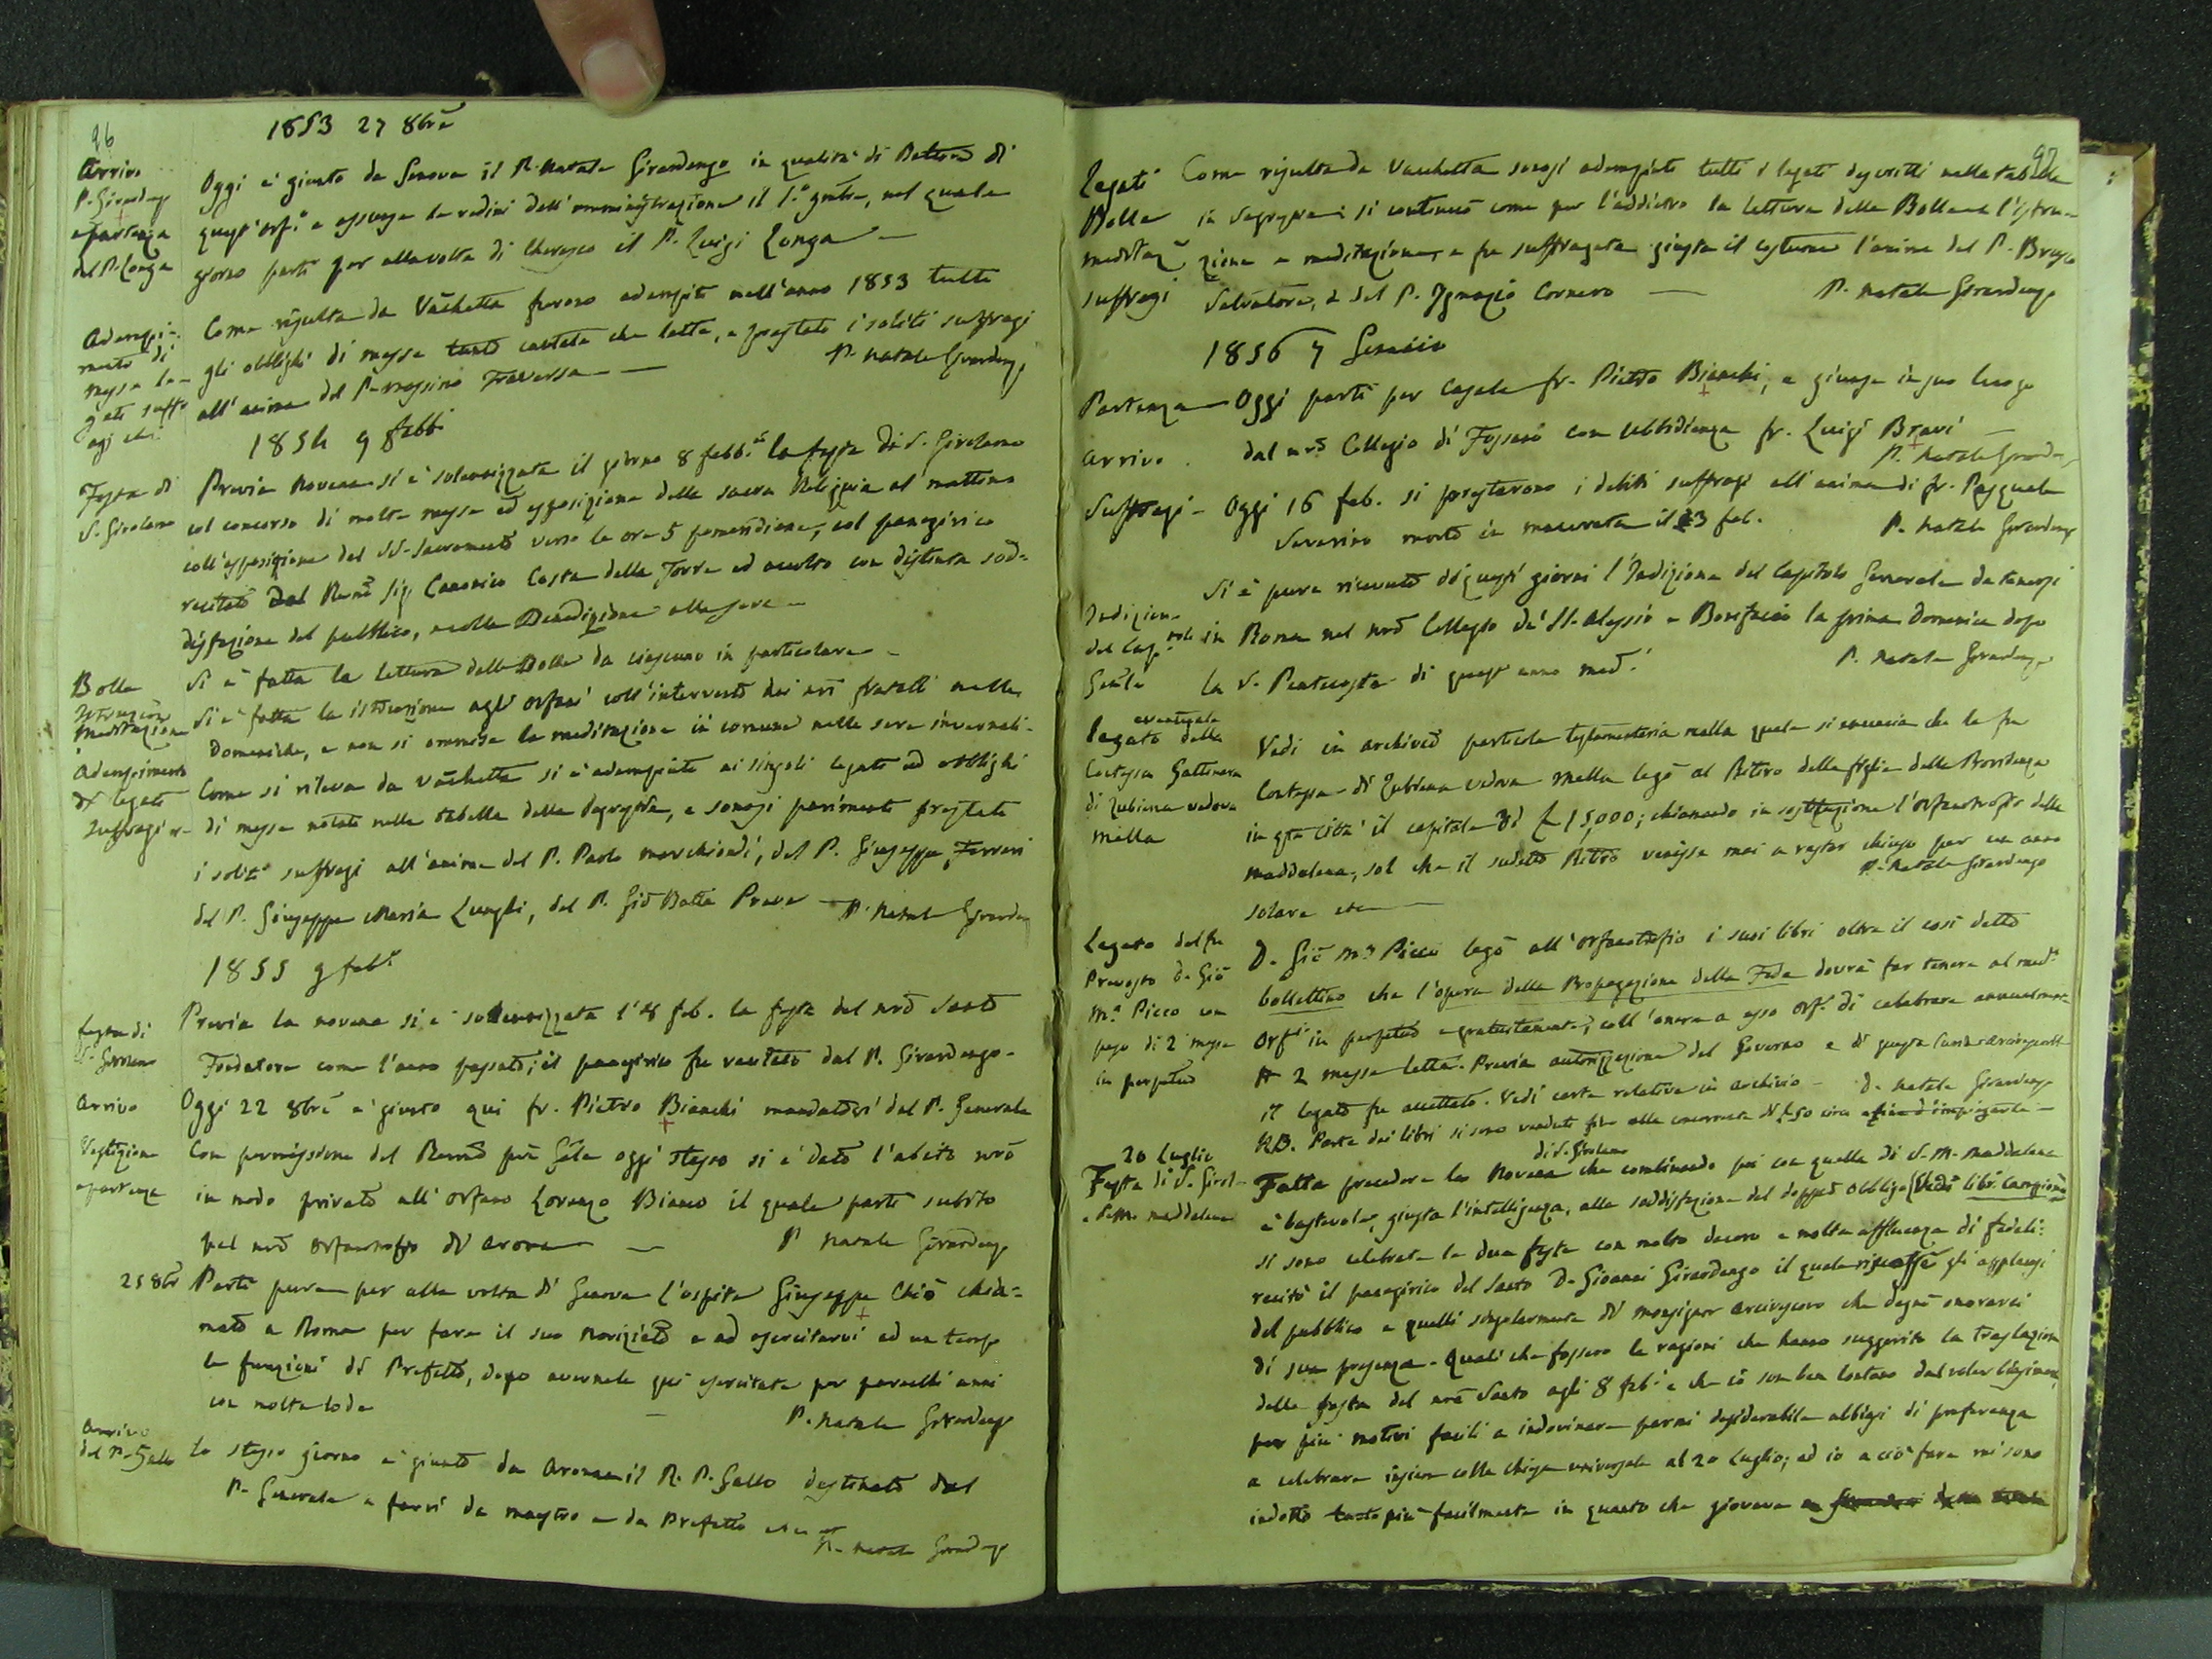 96
1853 27 8bre
Arrivo
P. Girardengo
e partenza
del P. Longa
Oggi è giunto da Genova il P. Natale Girardengo in qualità di Rettore di
quest'Orf.o e assunse le redini dell'amministrazione il 1.o 9mbre, nel quale
giorno partì per alla volta di Cherasco il P. Luigi Longa —
Adempi-
mento di
messe le-
gati suffr
agi etc.
Come risulta da Vacchetta furono adempiti nell'anno 1853 tutti
gli obblighi di messe tanto cantate che lette, e prestati i soliti suffragi
all'anima del P. Massimo Traversa —
P. Natale Girardengo
1854 9 febb.
Festa di
S. Girolamo
Previa Novena si è solennizzata il giorno 8 febb. la festa di S. Girolamo
col concorso di molte messe ed esposizione della sacra Reliquia al mattino
coll'esposizione del SS. Sacramento verso le ore 5 pomeridiane, col panegirico
recitato dal Rev.mo Sig. Canonico Costa della Torre ed accolto con distinta sod-
disfazione del pubblico, e colla Benedizione alla sera —
Bolla
Si è fatta la lettura delle Bolle da ciascuno in particolare —
Istruzione
Meditazione
Si è fatta la istruzione agli orfani coll'intervento dei nri fratelli nelle
Domeniche, e non si ommise la meditazione in comune nelle sere invernali.
Adempimento
di legati
Suffragi
Come si rileva da Vacchetta si è adempiuto ai singoli legati ed obblighi
di messe notati nella tabella della Sagrestia, e sonosi parimenti prestati
i soliti suffragi all'anima del P. Paolo Marchiondi, del P. Giuseppe Ferreri
del P. Giuseppe Maria Lunghi, del P. Gio Batta Prave — P. Natale Girardengo
1855 9 feb.
festa di
S. Girolamo
Previa la novena si è solennizzata l'8 feb. la festa del nro Santo
Fondatore come l'anno passato; il panegirico fu recitato dal P. Girardengo —
Arrivo
Oggi 22 8bre è giunto qui fr. Pietro Bianchi mandatovi dal P. Generale
Vestizione
e partenza
Con permissione del Rev.mo pre Gnle oggi stesso si è dato l'abito nro
in modo privato all'orfano Lorenzo Bianco il quale partì subito
pel nro orfanotrofio di Arona — P. Natale Girardengo
25 8bre
Partì pure per alla volta di Genova l'ospite Giuseppe Chiò chia-
mato a Roma per fare il suo Noviziato e ad esercitarvi ad un tempo
le funzioni di Prefetto, dopo avernele qui esercitate per parecchi anni
con molta lode — P. Natale Girardengo
Arrivo
del P. Gallo
Lo stesso giorno è giunto da Arona il R. P. Gallo destinato dal
P. Generale a farvi da maestro e da Prefetto etc.
P. Natale Girardengo
97
Legati
Bolle
Meditaz.
Suffragi
Come risulta da Vacchetta sonosi adempiti tutti i legati descritti nella tabella
in Sagrestia: si continuò come per l'addietro la lettura delle Bolle e l'istru-
zione e meditazione, e fu suffragata giusta il costume l'anima del P. Brusco
Salvatore, e del P. Ignazio Cornero — P. Natale Girardengo
1856 7 Gennaio
Partenza
Oggi partì per Casale fr. Pietro Bianchi, e giunse in suo luogo
Arrivo
dal nro Collegio di Fossano con ubbidienza fr. Luigi Bravi —
P. Natale Girardengo
Suffragi
Oggi 16 feb. si prestarono i debiti suffragi all'anima di fr. Pasquale
Severino morto in Macerata il 3 feb.
P. Natale Girardengo
Indizione
del Cap.olo
Gnle
Si è pure ricevuto di questi giorni l'Indizione del Capitolo Generale da tenersi
in Roma nel nro Collegio de' SS. Alessio e Bonifacio la prima Domenica dopo
la S. Pentecoste di quest'anno med.
P. Natale Girardengo
eventuale
legato della
Contessa Gattinara
di Zubiena vedova
Mella
Vedi in archivio particola testamentaria nella quale si enuncia che la fu
Contessa di Zubiena vedova Mella legò al Ritiro delle figlie della Provvidenza
in qta Città il capitale di £ 15,000; chiamando in sostituzione l'orfanotrofio della
Maddalena, sol che il sudetto Ritiro venisse mai a restar chiuso per un anno
solare etc —
P. Natale Girardengo
Legato del fu
Prevosto D. Gio
M.a Picco con
peso di 2 messe
in perpetuo
D. Gio M.a Picco legò all'orfanotrofio i suoi libri oltre il così detto
bollettino che l'opera della Propagazione della Fede dovrà far tenere al med.o
Orf.o in perpetuo e gratuitamente, coll'onere a esso Orf.o di celebrare annualmente
2 messe lette. Previa autorizzazione del Governo e di questa Curia Arcivescovile
il legato fu accettato. Vedi carta relativa in archivio — P. Natale Girardengo
NB. Parte dei libri si sono venduti fino alla concorrenza di £ 50 circa affine d'impiegarle —
20 Luglio
Festa di S. Girol.
e S. M. Maddalena
di S. Girolamo
Fatta precedere la Novena che combinando poi con quella di S. M. Maddalena
è bastevole, giusta l'intelligenza, alla soddisfazione del doppio obbligo (Vedi libr.
si sono celebrate le due feste con molto decoro e molta affluenza di fedeli:
recitò il panegirico del Santo D. Gioanni Girardengo il quale riscosse gli applausi
del pubblico e quelli singolarmente di Monsignor Arcivescovo che degnò onorarci
di sua presenza. Quali che fossero le ragioni che hanno suggerito la traslazione
della festa del nro Santo agli 8 feb. e che io son ben lontano dal voler
per più motivi facili a indovinare parmi desiderabile abbiasi di preferenza
a celebrare insieme colla Chiesa universale al 20 Luglio; ed io a ciò fare mi sono
indotto tanto più facilmente in quanto che giovava